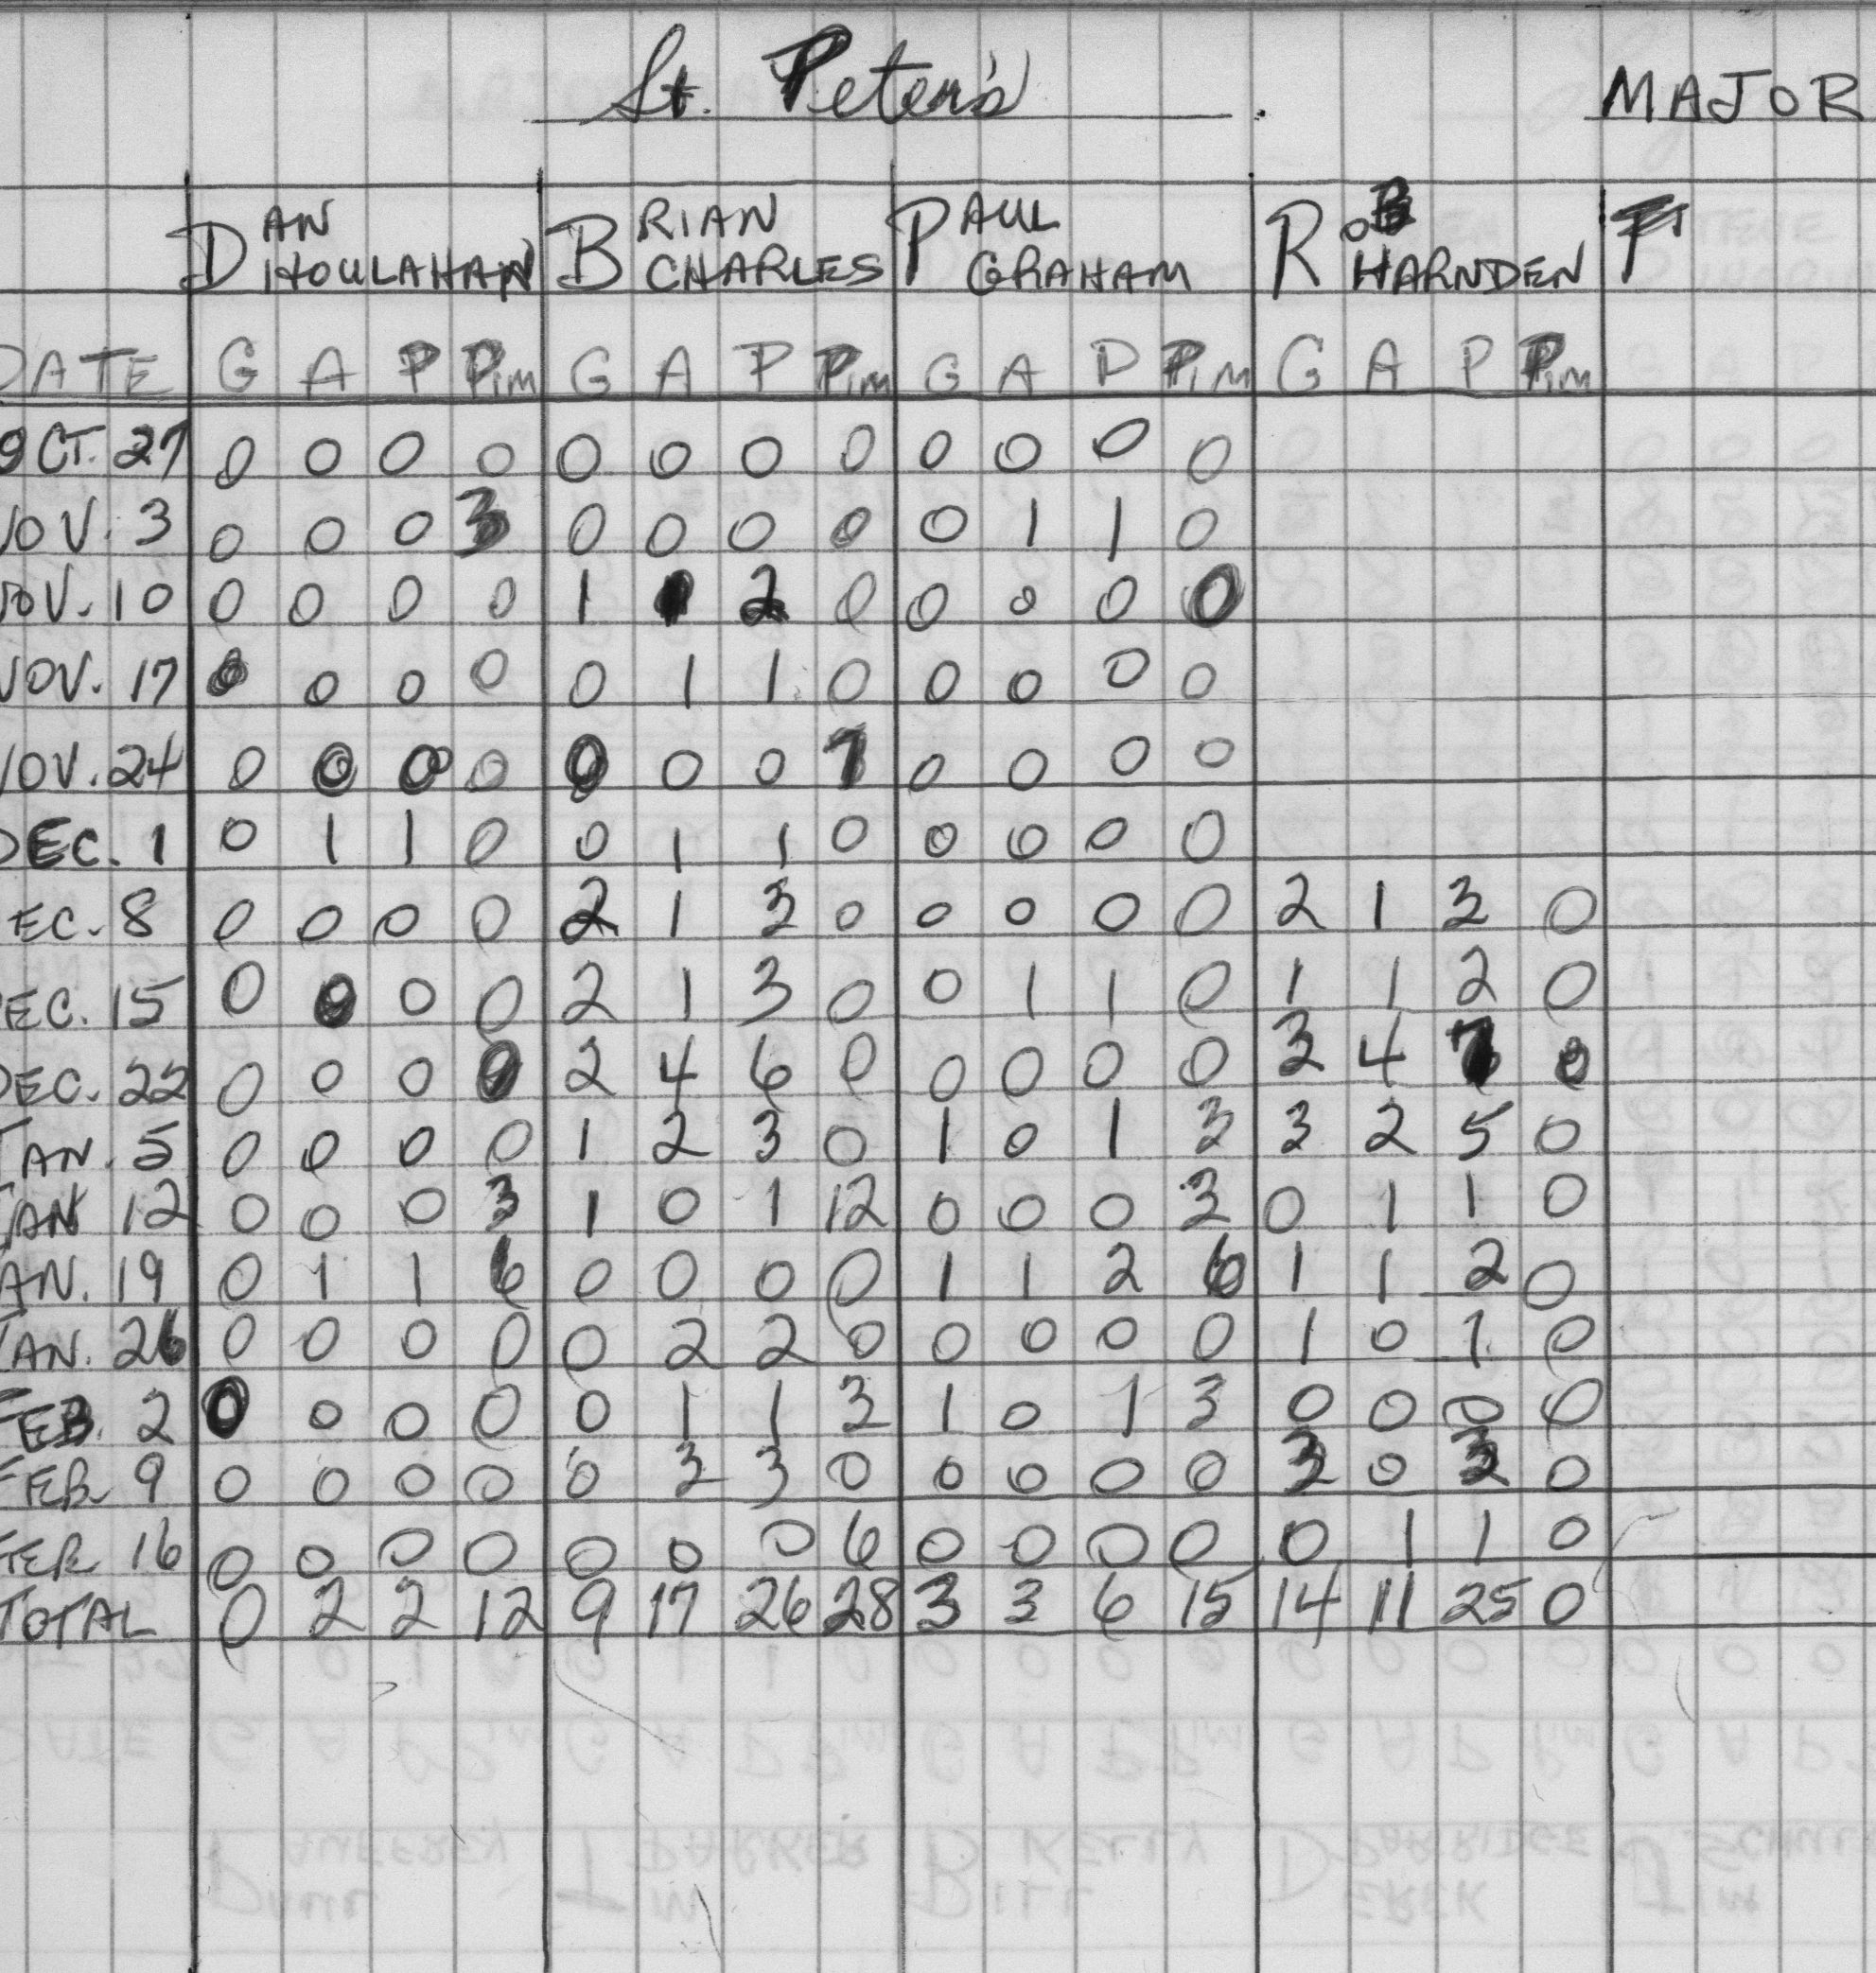 St. Peter's
MAJOR
DAN HOULAHAN BRIAN CHARLES PAUL GRAHAM ROB HARNDEN
DATE G A P Pim G A P Pim G A P Pim G A P Pim
OCT. 27 0 0 0 0 0 0 0 0 0 0 0 0
NOV. 3 0 0 0 3 0 0 0 0 0 1 1 0
NOV. 10 0 0 0 0 1 1 2 0 0 0 0 0
NOV. 17 0 0 0 0 0 1 1 0 0 0 0 0
NOV. 24 0 0 0 0 0 0 0 7 0 0 0 0
DEC. 1 0 1 1 0 0 1 1 0 0 0 0 0
DEC. 8 0 0 0 0 2 1 3 0 0 0 0 0 2 1 3 0
DEC. 15 0 0 0 0 2 1 3 0 0 1 1 0 1 1 2 0
DEC. 22 0 0 0 0 2 4 6 0 0 0 0 0 3 4 7 0
JAN. 5 0 0 0 0 1 2 3 0 1 0 1 3 3 2 5 0
JAN 12 0 0 0 3 1 0 1 12 0 0 0 3 0 1 1 0
JAN. 19 0 1 1 6 0 0 0 0 1 1 2 6 1 1 2 0
JAN. 26 0 0 0 0 0 2 2 0 0 0 0 0 1 0 1 0
FEB. 2 0 0 0 0 0 1 1 3 1 0 1 3 0 0 0 0
FEB. 9 0 0 0 0 0 3 3 0 0 0 0 0 3 0 3 0
FEB. 16 0 0 0 0 0 0 0 6 0 0 0 0 0 1 1 0
TOTAL 0 2 2 12 9 17 26 28 3 3 6 15 14 11 25 0